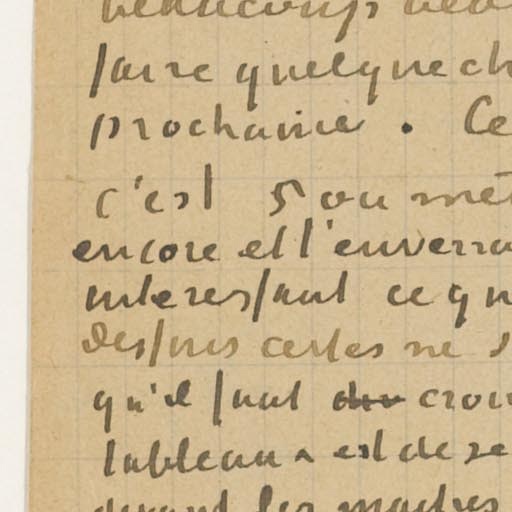 beaucoup beau
faire quelque ch
prochaine. Ce
c'est 5 ou mét
encore et l'enverra
interessant ce qu
Dessus certes ne s
qu'il faut croi
tableaux est de re
devant les maitres